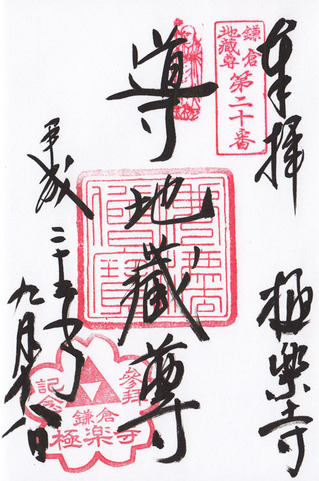 奉拝
極楽寺
鎌倉
地蔵尊
第二十番
導地蔵尊
平成二十五年
九月
參拜
記念
鎌倉
極楽寺